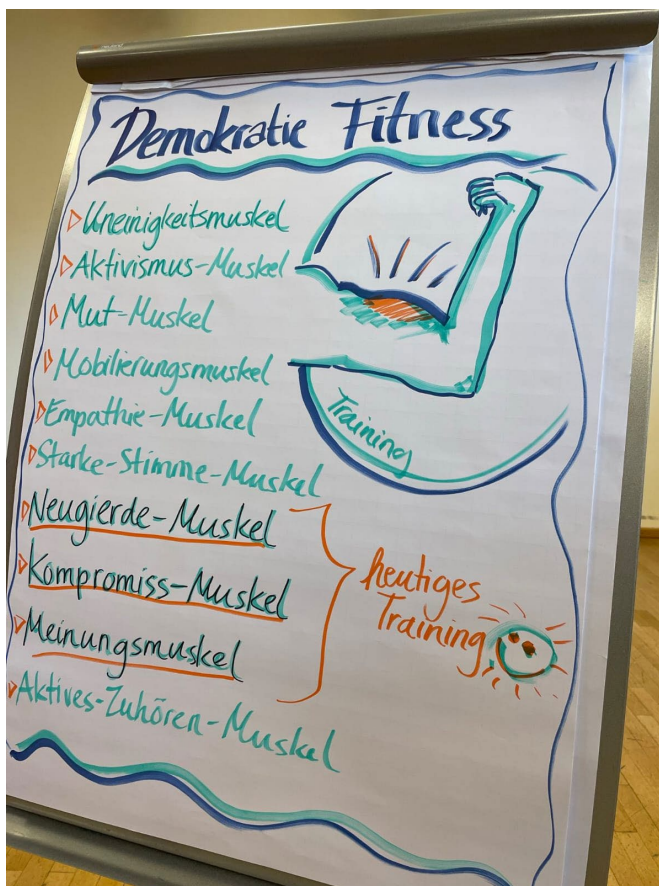 Demokratie Fitness
Uneinigkeitsmuskel
Aktivismus-Muskel
Mut-Muskel
Mobilierungsmuskel
Empathie-Muskel
Starke-Stimme-Muskel
Neugierde-Muskel
Kompromiss-Muskel
Meinungsmuskel
Aktives-Zuhören-Muskel
Training
heutiges
Training